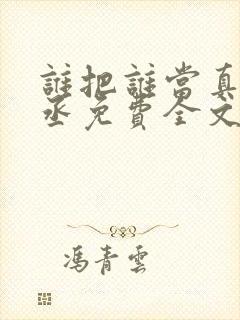 誰把誰當真
丞免費全文
馮青雲